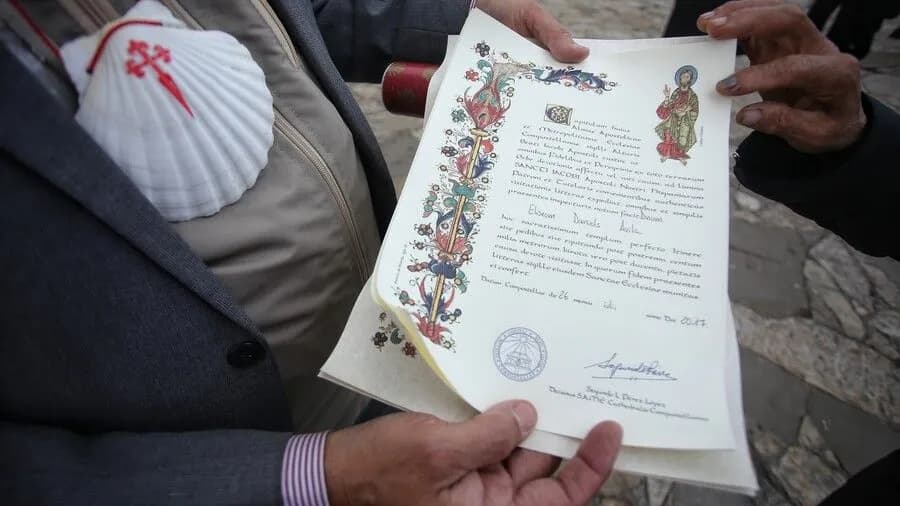 Capitulum huius
Almae Apostolicae et
Metropolitanae Ecclesiae
Compostellanae sigilli Altaris
Beati Iacobi Apostoli custos ut
omnibus Fidelibus et Peregrinis ex toto terrarum
Orbe, devotionis affectu vel voti causa, ad limina
SANCTI IACOBI, Apostoli Nostri, Hispaniarum
Patroni et Tutelaris convenientibus, authenticas
visitationis litteras expediat, omnibus et singulis
praesentes inspecturis, notum facit: Dnum
Daniels Avila
hoc sacratissimum templum, perfecto itinere
sive pedibus sive equitando post postrema centum
milia metrorum, birota vero post ducenta, pietatis
causa, devote visitasse. In quorum fidem praesentes
litteras, sigillo eiusdem Sanctae Ecclesiae munitas,
ei confert.
Datum Compostellae die 26 mensis
anno Dni 2017
Segundo L. Pérez López
Decanus S.A.M.E. Cathedralis Compostellanae